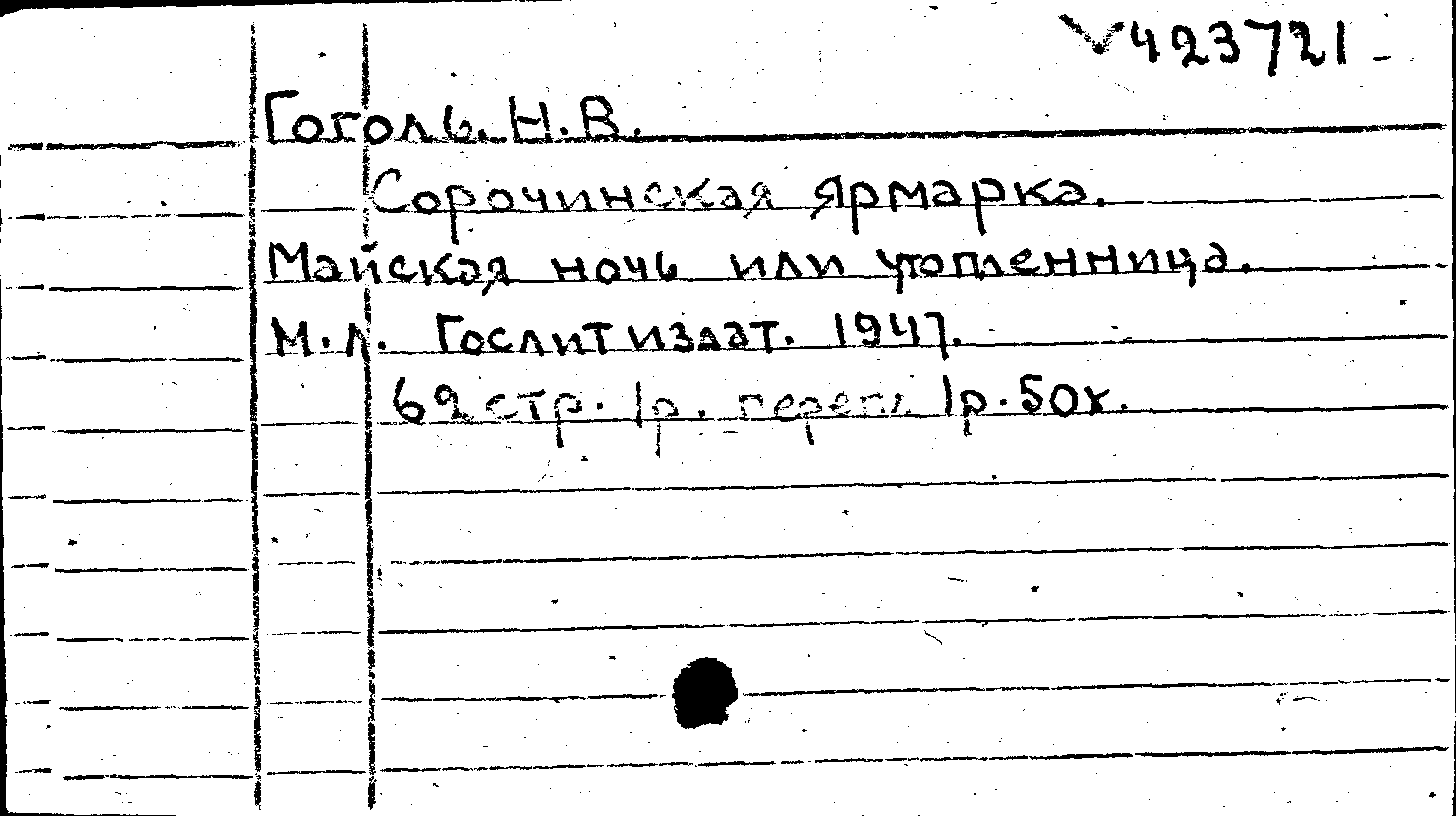 V423721
Гоголь. Н.В.
Сорочинская ярмарка.
Майская ночь или утопленница.
М.Л. Гослитиздат. 1947.
62 стр. 1р. перепл. 1р.50к.